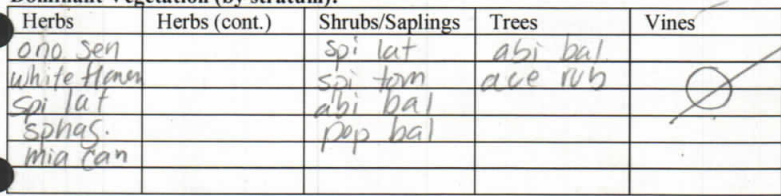 Dominant Vegetation (by stratum):
Herbs Herbs (cont.) Shrubs/Saplings Trees Vines
ono sen spi lat abi bal
white flower spi tom ace rub
spi lat abi bal
sphag. pop bal
mia can